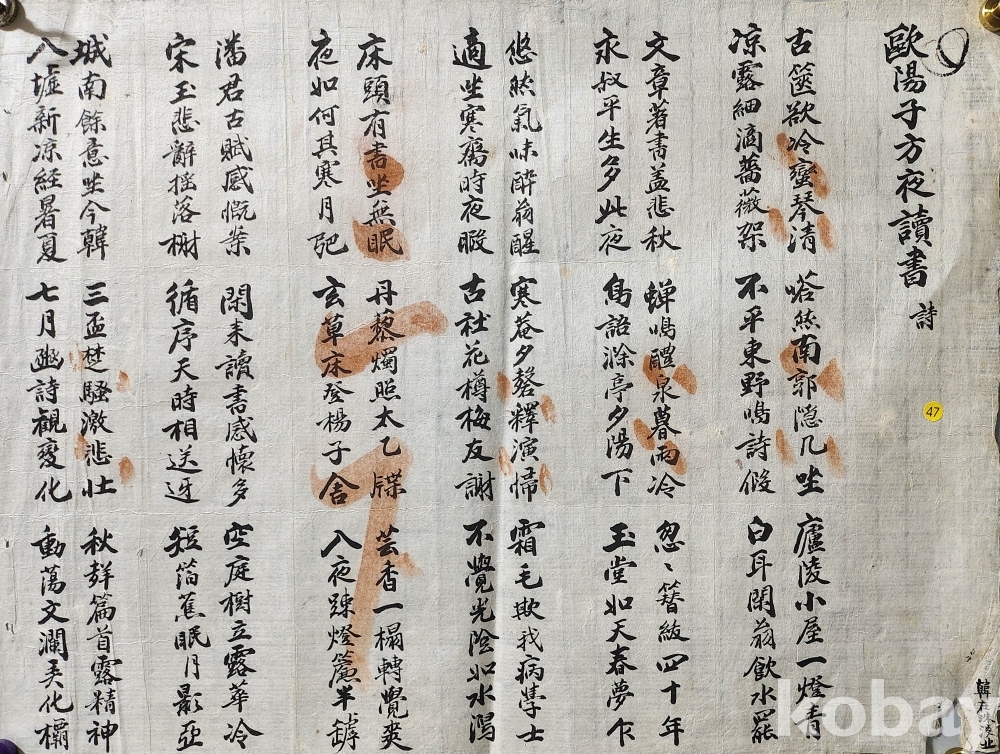 歐陽子方夜讀書 詩
古篋欲冷蛩琴清 嗒然南郭隐几坐 廬陵小屋一燈青
凉露細滴薔薇架 不平東野鳴詩假 白耳閑翁飮水罷
文章著書盖悲秋 蟬鳴醴泉暮雨冷 忽〻簪紱四十年
永叔平生多此夜 島語滁亭夕陽下 玉堂如天春夢乍
悠然氣味醉翁醒 寒菴夕磬釋演帰 霜毛欺我病學士
適坐寒窓時夜暇 古社花樽梅友謝 不覺光陰如水瀉
床頭有書坐無眠 丹藜燭照太乙牒 芸香一榻轉覺爽
夜如何其寒月 玄草床登楊子舍 八夜踈燈簾半罅
潘君古賦感慨業 閑来讀書感懷多 空庭樹立露華冷
宋玉悲辭搖落榭 循序天時相送迓 短箔蕉眠月影亞
城南餘意坐今韓 三盃楚騷激悲壯 秋聲篇首露精神
八墟新凉經暑夏 七月豳詩観變化 動蕩文瀾化欛
47
kobay